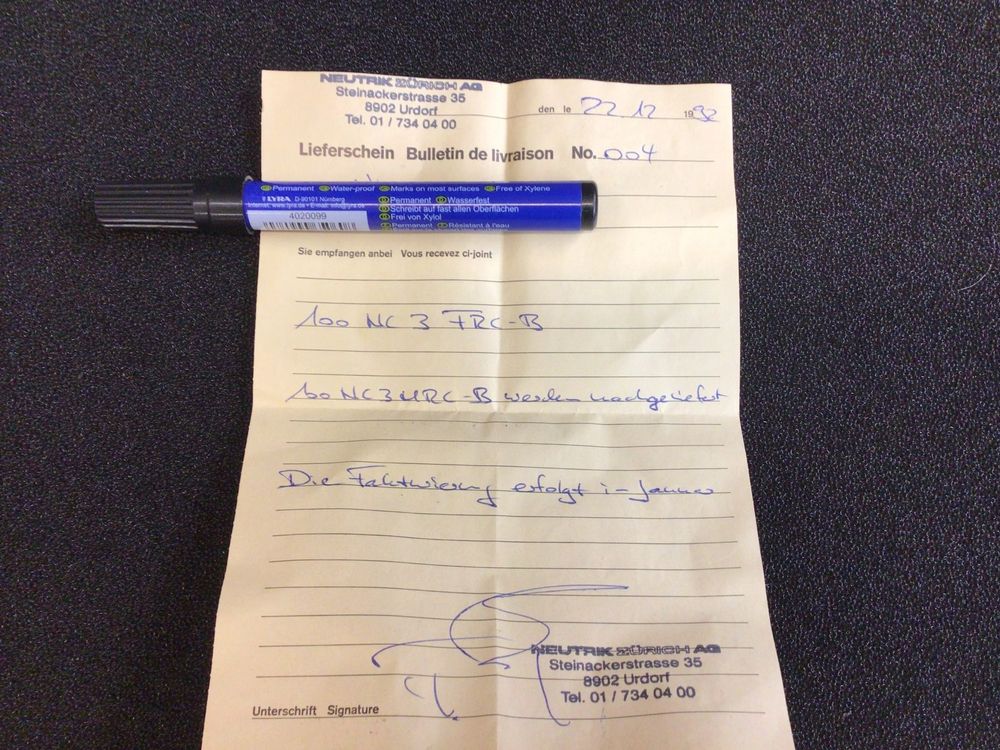 NEUTRIK ZÜRICH AG
Steinackerstrasse 35
8902 Urdorf
Tel. 01 / 734 04 00
den le 22. 12 1992
Lieferschein Bulletin de livraison No. 004
Permanent Water-proof Marks on most surfaces Free of Xylene
LYRA D-90101 Nürnberg
Internet: www.lyra.de • E-mail: info@lyra.de
4020099
Permanent Wasserfest
Schreibt auf fast allen Oberflächen
Frei von Xylol
Permanent Résistant à l'eau
Sie empfangen anbei Vous recevez ci-joint
100 NC 3 FRC-B
100 NC3MRC-B werden nachgeliefert
Die Fakturierung erfolgt im Januar
NEUTRIK ZÜRICH AG
Steinackerstrasse 35
8902 Urdorf
Tel. 01 / 734 04 00
Unterschrift Signature